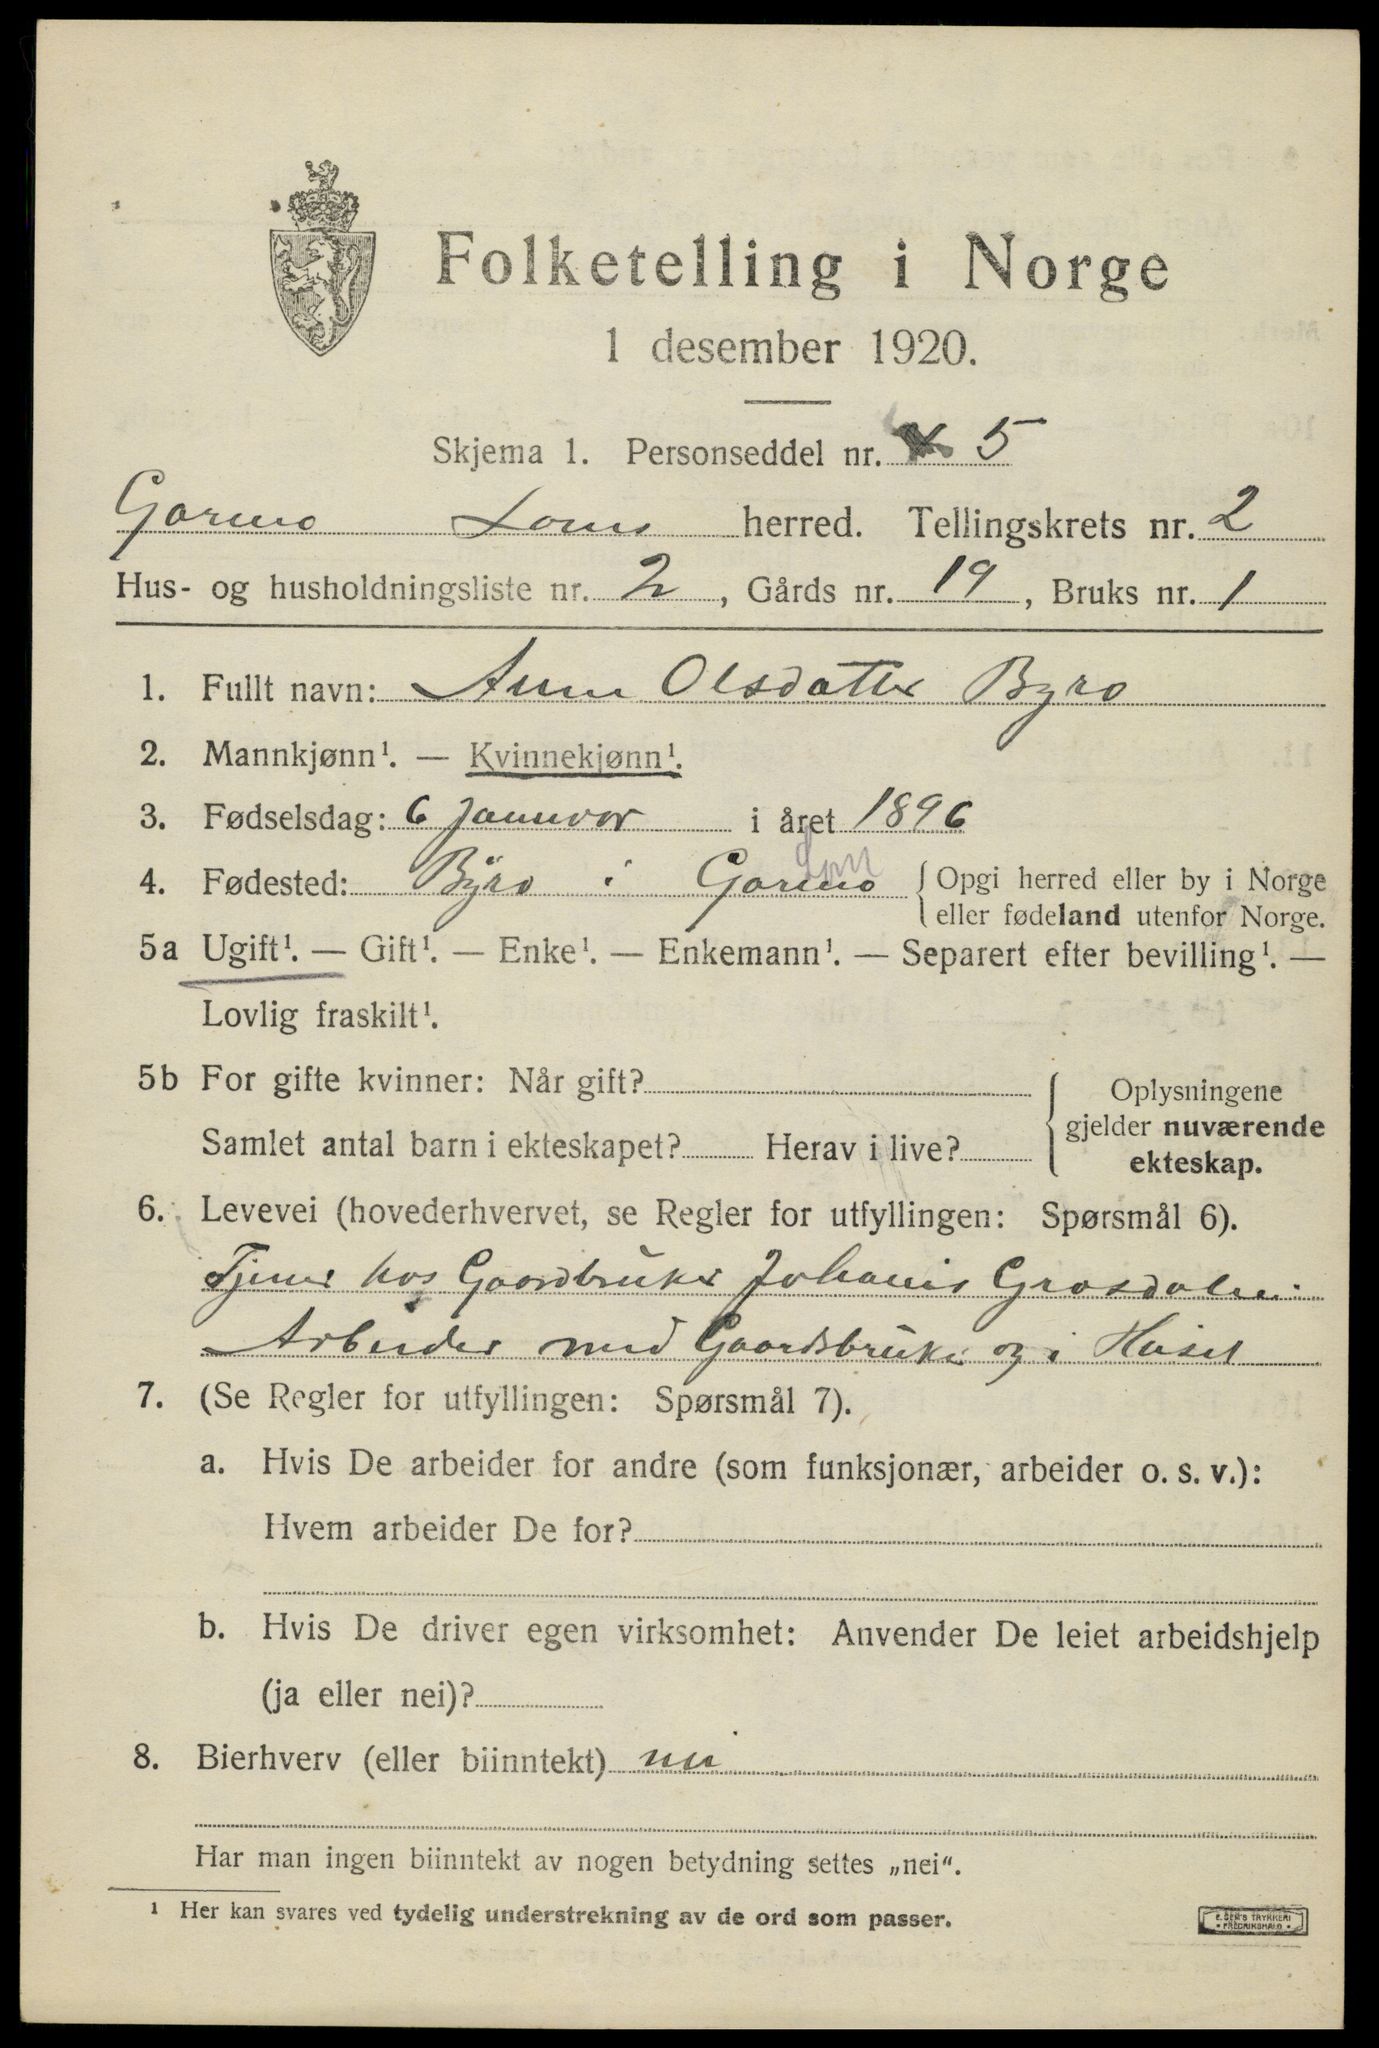 Folketelling i Norge
1 desember 1920.
Skjema 1. Personseddel nr. 5
Garmo Loms herred. Tellingskrets nr. 2
Hus- og husholdningsliste nr. 2, Gårds nr. 19, Bruks nr. 1
1. Fullt navn: Anne Olsdatter Byrø
2. Mannkjønn¹. — Kvinnekjønn¹.
3. Fødselsdag: 6 Januar i året 1896
Lom
4. Fødested: Byrø i Garmo { Opgi herred eller by i Norge
eller fødeland utenfor Norge.
5a Ugift¹. — Gift¹. — Enke¹. — Enkemann¹. — Separert efter bevilling¹. —
Lovlig fraskilt¹.
5b For gifte kvinner: Når gift?
Samlet antal barn i ekteskapet? Herav i live?
Oplysningene
gjelder nuværende
ekteskap.
6. Levevei (hovederhvervet, se Regler for utfyllingen: Spørsmål 6).
Tjener hos Gaardbruker Johanis Grosdalen
Arbeider med Gaardsbruk og i Huset
7. (Se Regler for utfyllingen: Spørsmål 7).
a. Hvis De arbeider for andre (som funksjonær, arbeider o. s. v.):
Hvem arbeider De for?
b. Hvis De driver egen virksomhet: Anvender De leiet arbeidshjelp
(ja eller nei)?
8. Bierhverv (eller biinntekt) nei
Har man ingen biinntekt av nogen betydning settes „nei“.
¹ Her kan svares ved tydelig understrekning av de ord som passer.
E. SEM'S TRYKKERI
FREDRIKSHALD